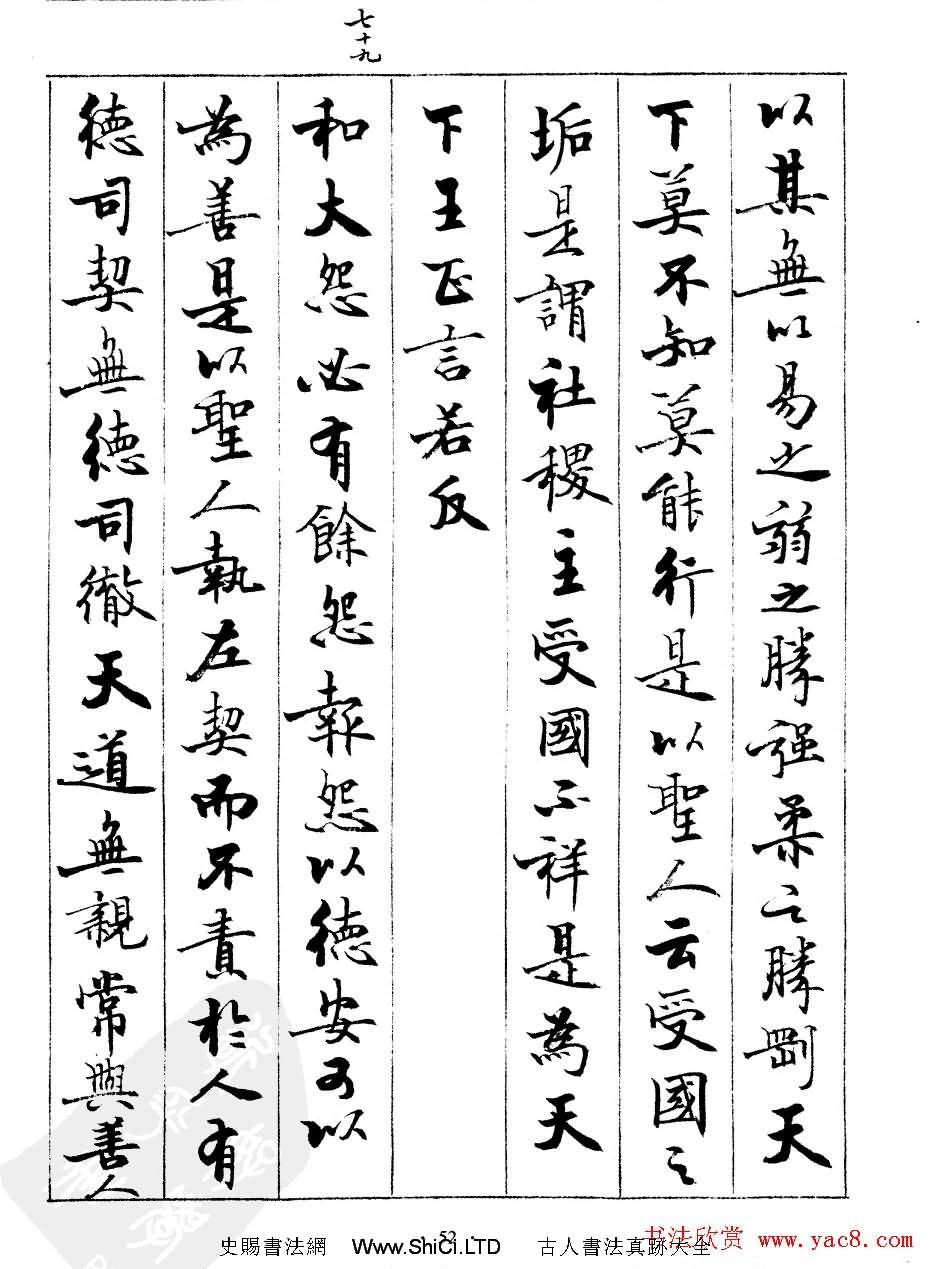 七十九
以其無以易之弱之勝强柔之勝剛天
下莫不知莫能行是以聖人云受國之
垢是謂社稷主受國不祥是為天
下王正言若反
和大怨必有餘怨報怨以德安可以
為善是以聖人執左契而不責於人有
德司契無德司徹天道無親常與善人
52
史賜書法網 Www.ShiCi.LTD 古人書法真跡大全
书法欣赏 www.yac8.com